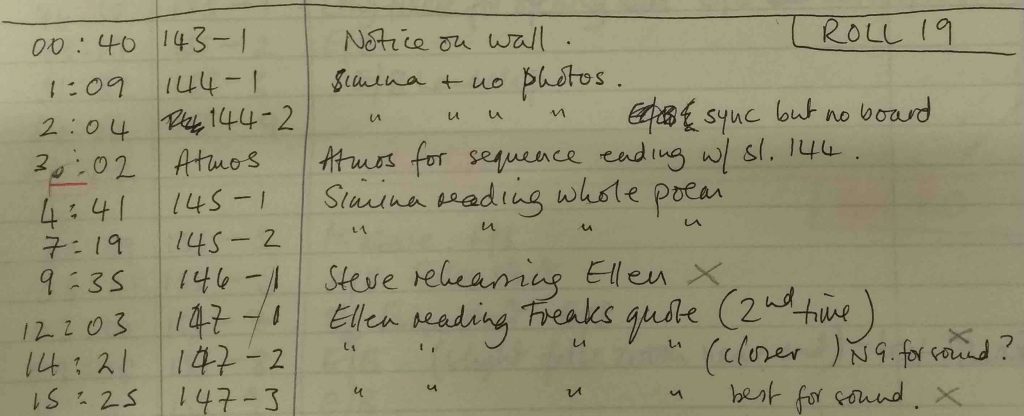 ROLL 19
00:40 143-1 Notice on wall.
1:09 144-1 Simina + no photos.
2:04 144-2 " " " " sync but no board
3:02 Atmos Atmos for sequence ending w/ sl. 144.
4:41 145-1 Simina reading whole poem
7:19 145-2 " " " "
9:35 146-1 Steve rehearsing Ellen X
12:03 147-1 Ellen reading Freaks quote (2nd time)
14:21 147-2 " " " " (closer) NG. for sound? X
15:25 147-3 " " " " best for sound. X